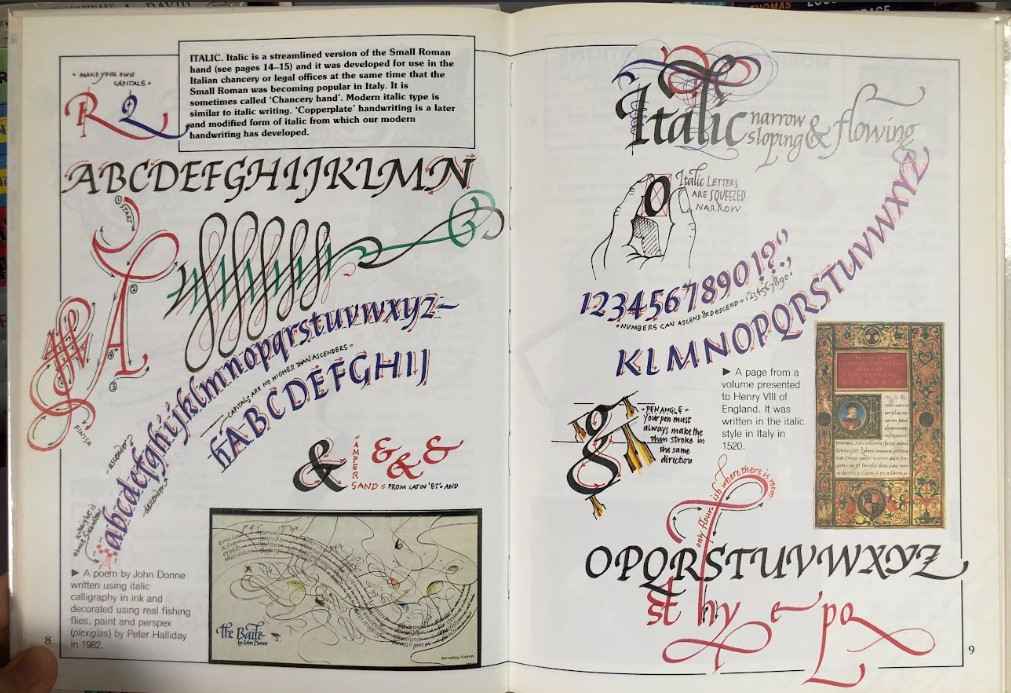 • MAKE YOUR OWN
CAPITALS •
R Q
ITALIC. Italic is a streamlined version of the Small Roman
hand (see pages 14–15) and it was developed for use in the
Italian chancery or legal offices at the same time that the
Small Roman was becoming popular in Italy. It is
sometimes called 'Chancery hand'. Modern italic type is
similar to italic writing. 'Copperplate' handwriting is a later
and modified form of italic from which our modern
handwriting has developed.
ABCDEFGHIJKLMN
START
A
FINISH
abcdefghijklmnopqrstuvwxyz
CAPITALS ARE NO HIGHER THAN ASCENDERS
hABCDEFGHIJ
&
AMPERSAND = FROM LATIN 'ET' = AND
& & &
The Baite
by John Donne
▶ A poem by John Donne
written using italic
calligraphy in ink and
decorated using real fishing
flies, paint and perspex
(plexiglas) by Peter Halliday
in 1982.
8
Italic narrow
sloping & flowing
o
Italic LETTERS
ARE SQUEEZED
NARROW
1234567890!?
• NUMBERS CAN ASCEND & DESCEND = 1234567890
KLMNOPQRSTUVWXYZ
▶ A page from a
volume presented
to Henry VIII of
England. It was
written in the italic
style in Italy in
1520.
g
• PEN ANGLE •
Your pen must
always make the
thin stroke in
the same
direction
only flourish where there is room
OPQRSTUVWXYZ
st hy e po
9